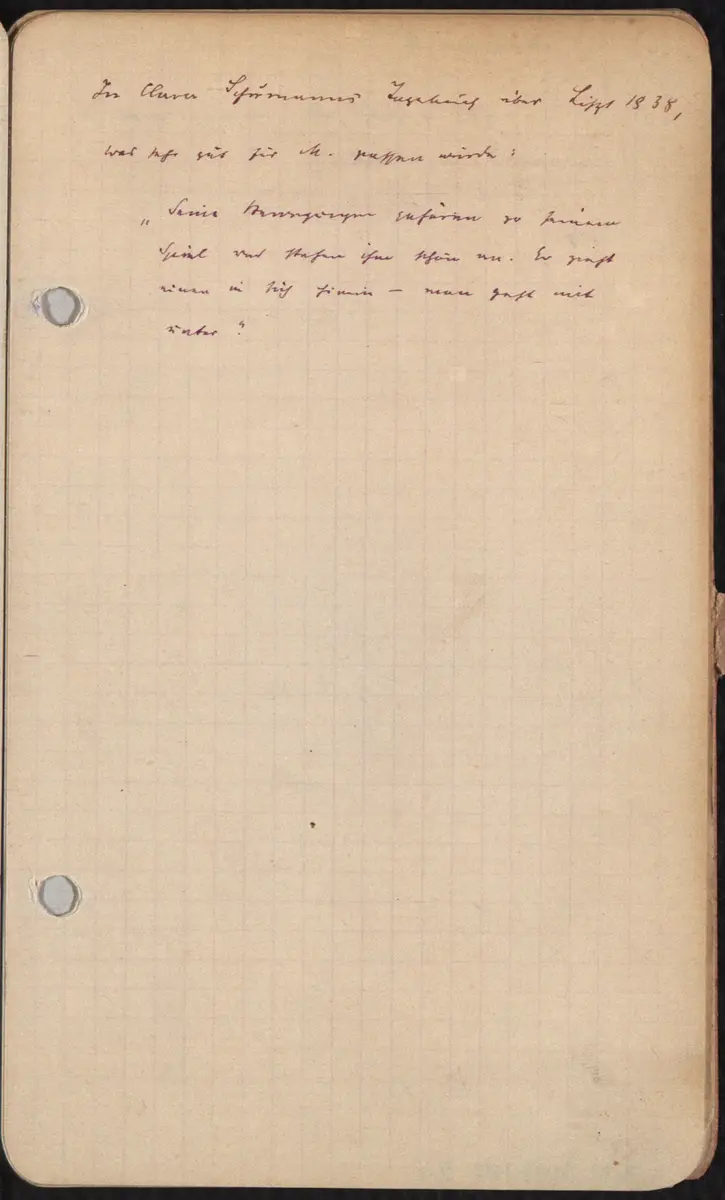 In Clara Schumanns Tagebuch über Liszt 1838,
was sehr gut für M. passen würde:
„Seine Bewegungen gehören zu seinem
Spiel und stehen ihm schön an. Er zieht
einen in sich hinein — man geht mit
unter“